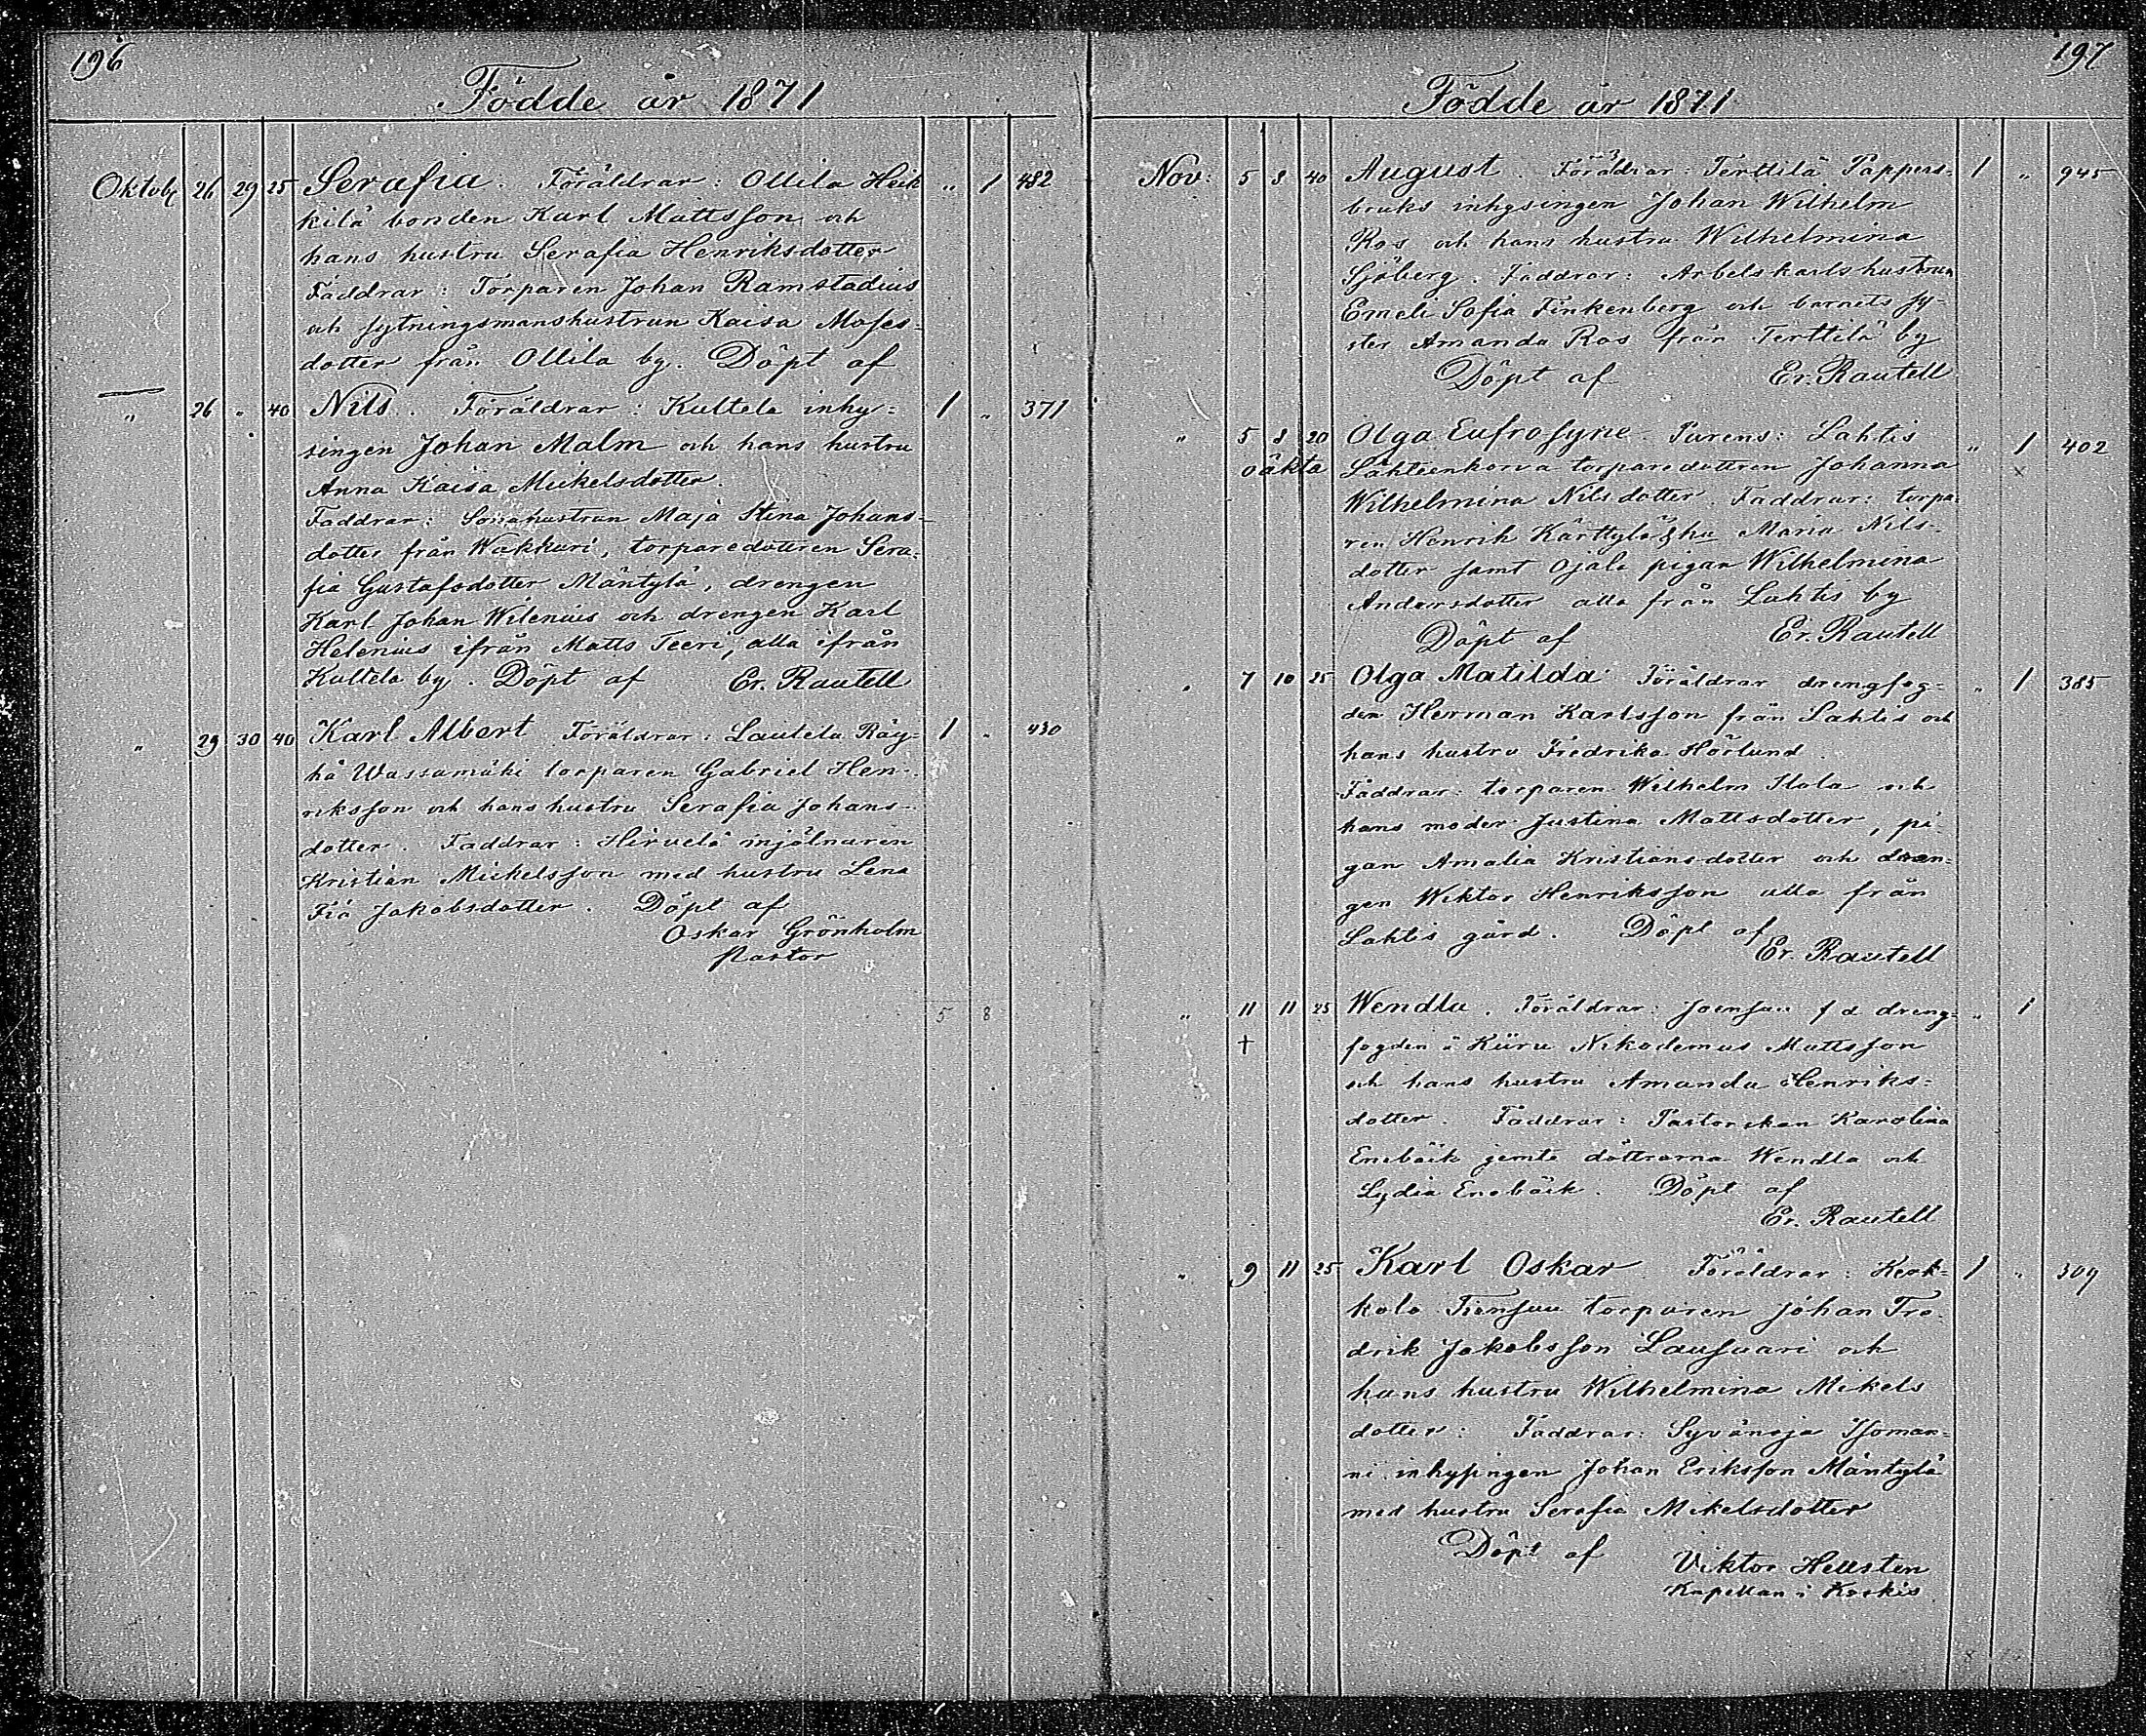 196
Födde år 1871
Oktobr 26 29 25 Serafia. Föräldrar: Ollila Heik „ 1 482
kilä bonden Karl Mattsson och
hans hustru Serafia Henriksdotter
Faddrar: Torparen Johan Ramstadius
och sytningsmanshustrun Kaisa Moses-
dotter från Ollila by. Döpt af
„ 26 „ 40 Nils. Föräldrar: Kultela inhy= 1 „ 371
singen Johan Malm och hans hustru
Anna Kaisa Mickelsdotter.
Faddrar: Sonahustrun Maja Stina Johans-
dotter från Wakkari, torparedotteren Sera-
fia Gustafsdotter Mäntylä, drengen
Karl Johan Wilenius och drengen Karl
Helenius ifrån Matts Teeri, alla ifrån
Kultela by. Döpt af Er. Rautell
„ 29 30 40 Karl Albert Föräldrar: Lautela Räy= 1 „ 430
hä Wassamäki torparen Gabriel Hen-
riksson och hans hustru Serafia Johans-
dotter. Faddrar: Hirvelä mjölnaren
Kristian Mickelsson med hustru Lena
Fia Jakobsdotter. Döpt af
Oskar Grönholm
Pastor
5 8
197
Födde år 1871
Nov: 5 8 40 August. Föräldrar: Terttilä Pappers- 1 „ 945
bruks inhysingen Johan Wilhelm
Ros och hans hustru Wilhelmina
Sjöberg. Faddrar: Arbetskarlshustrun
Emeli Sofia Finkenberg och barnets sy-
ster Amanda Ros från Terttilä by
Döpt af Er. Rautell
„ 5 8 20 Olga Eufrosyne. Parens: Lahtis „ 1 402
oäkta Lähteenkorva torparedottren Johanna x
Wilhelmina Nilsdotter. Faddrar: torpa-
ren Henrik Kärttylä & hu Maria Nils-
dotter samt Ojala pigan Wilhelmina
Andersdotter alla från Lahtis by
Döpt af Er. Rautell
„ 7 10 25 Olga Matilda. Föräldrar drengfog= „ 1 385
den Herman Karlsson från Lahtis och
hans hustru Fredrika Hörlund.
Faddrar: torparen Wilhelm Ilola och
hans moder Justina Mattsdotter, pi-
gan Amalia Kristiansdotter och dren=
gen Wiktor Henriksson alla från
Lahtis gård. Döpt af
Er. Rautell
„ 11 11 25 Wendla. Föräldrar: Joensuu f d dreng- „ 1
† fogden i Küru Nikodemus Mattsson
och hans hustru Amanda Henriks=
dotter. Faddrar: Pastorskan Karolina
Enebäck jemte döttrarna Wendla och
Lydia Enebäck. Döpt af
Er. Rautell
„ 9 11 25 Karl Oskar. Föräldrar: Kesk= 1 „ 309
kala torparen Johan Fre-
drik Jakobsson Lausvari och
hans hustru Wilhelmina Mikels
dotter: Faddrar: Syvänoja Isoman=
ni inhysingen Johan Eriksson Mäntylä
med hustru Serafia Mikelsdotter
Döpt af Viktor Hellsten
Kapellan i Koskis